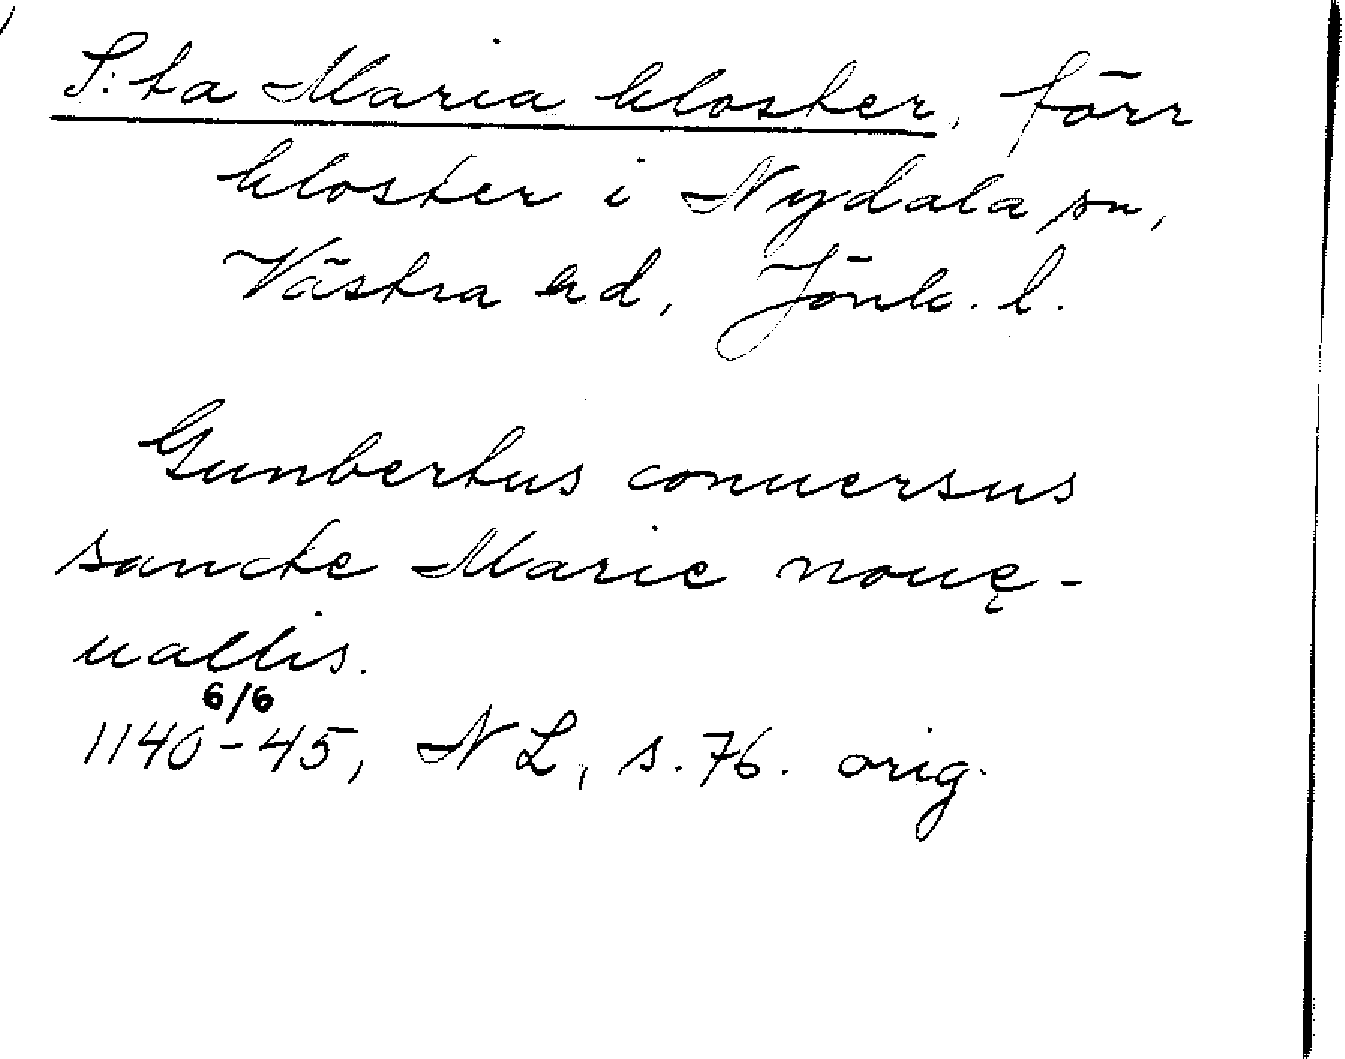 S:ta Maria kloster, förr
kloster i Nydala sn,
Västra hd, Jönk. l.
Gunbertus conuersus
sancte Marie nouę-
uallis.
6/6
1140-45, NL, s. 76. orig.